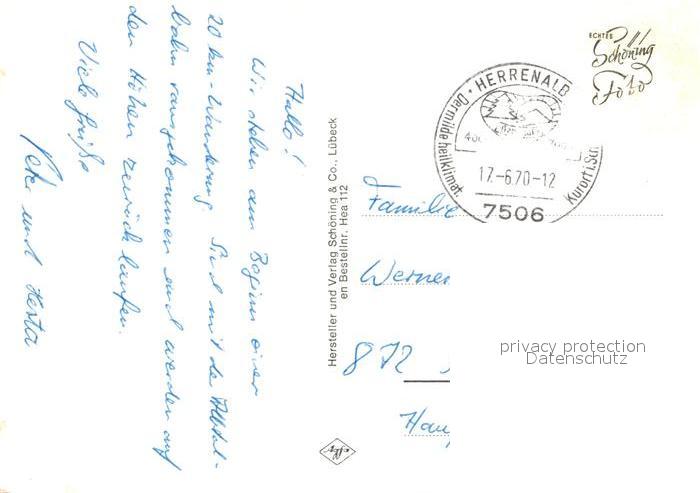 Hallo!
Wir stehen am Beginn einer
20 km-Wanderung. Sind mit der Albtal-
bahn raufgekommen und werden auf
den Höhen zurück laufen.
Viele Grüße
und Herta
Hersteller und Verlag Schöning & Co., Lübeck
en Bestellnr. Hea 112
agfa
ECHTES
Schöning
Foto
HERRENALB
Der milde heilklimat.
Kurort i. Sch
17.-6.70-12
7506
Familie
Werner
872
privacy protection
Datenschutz